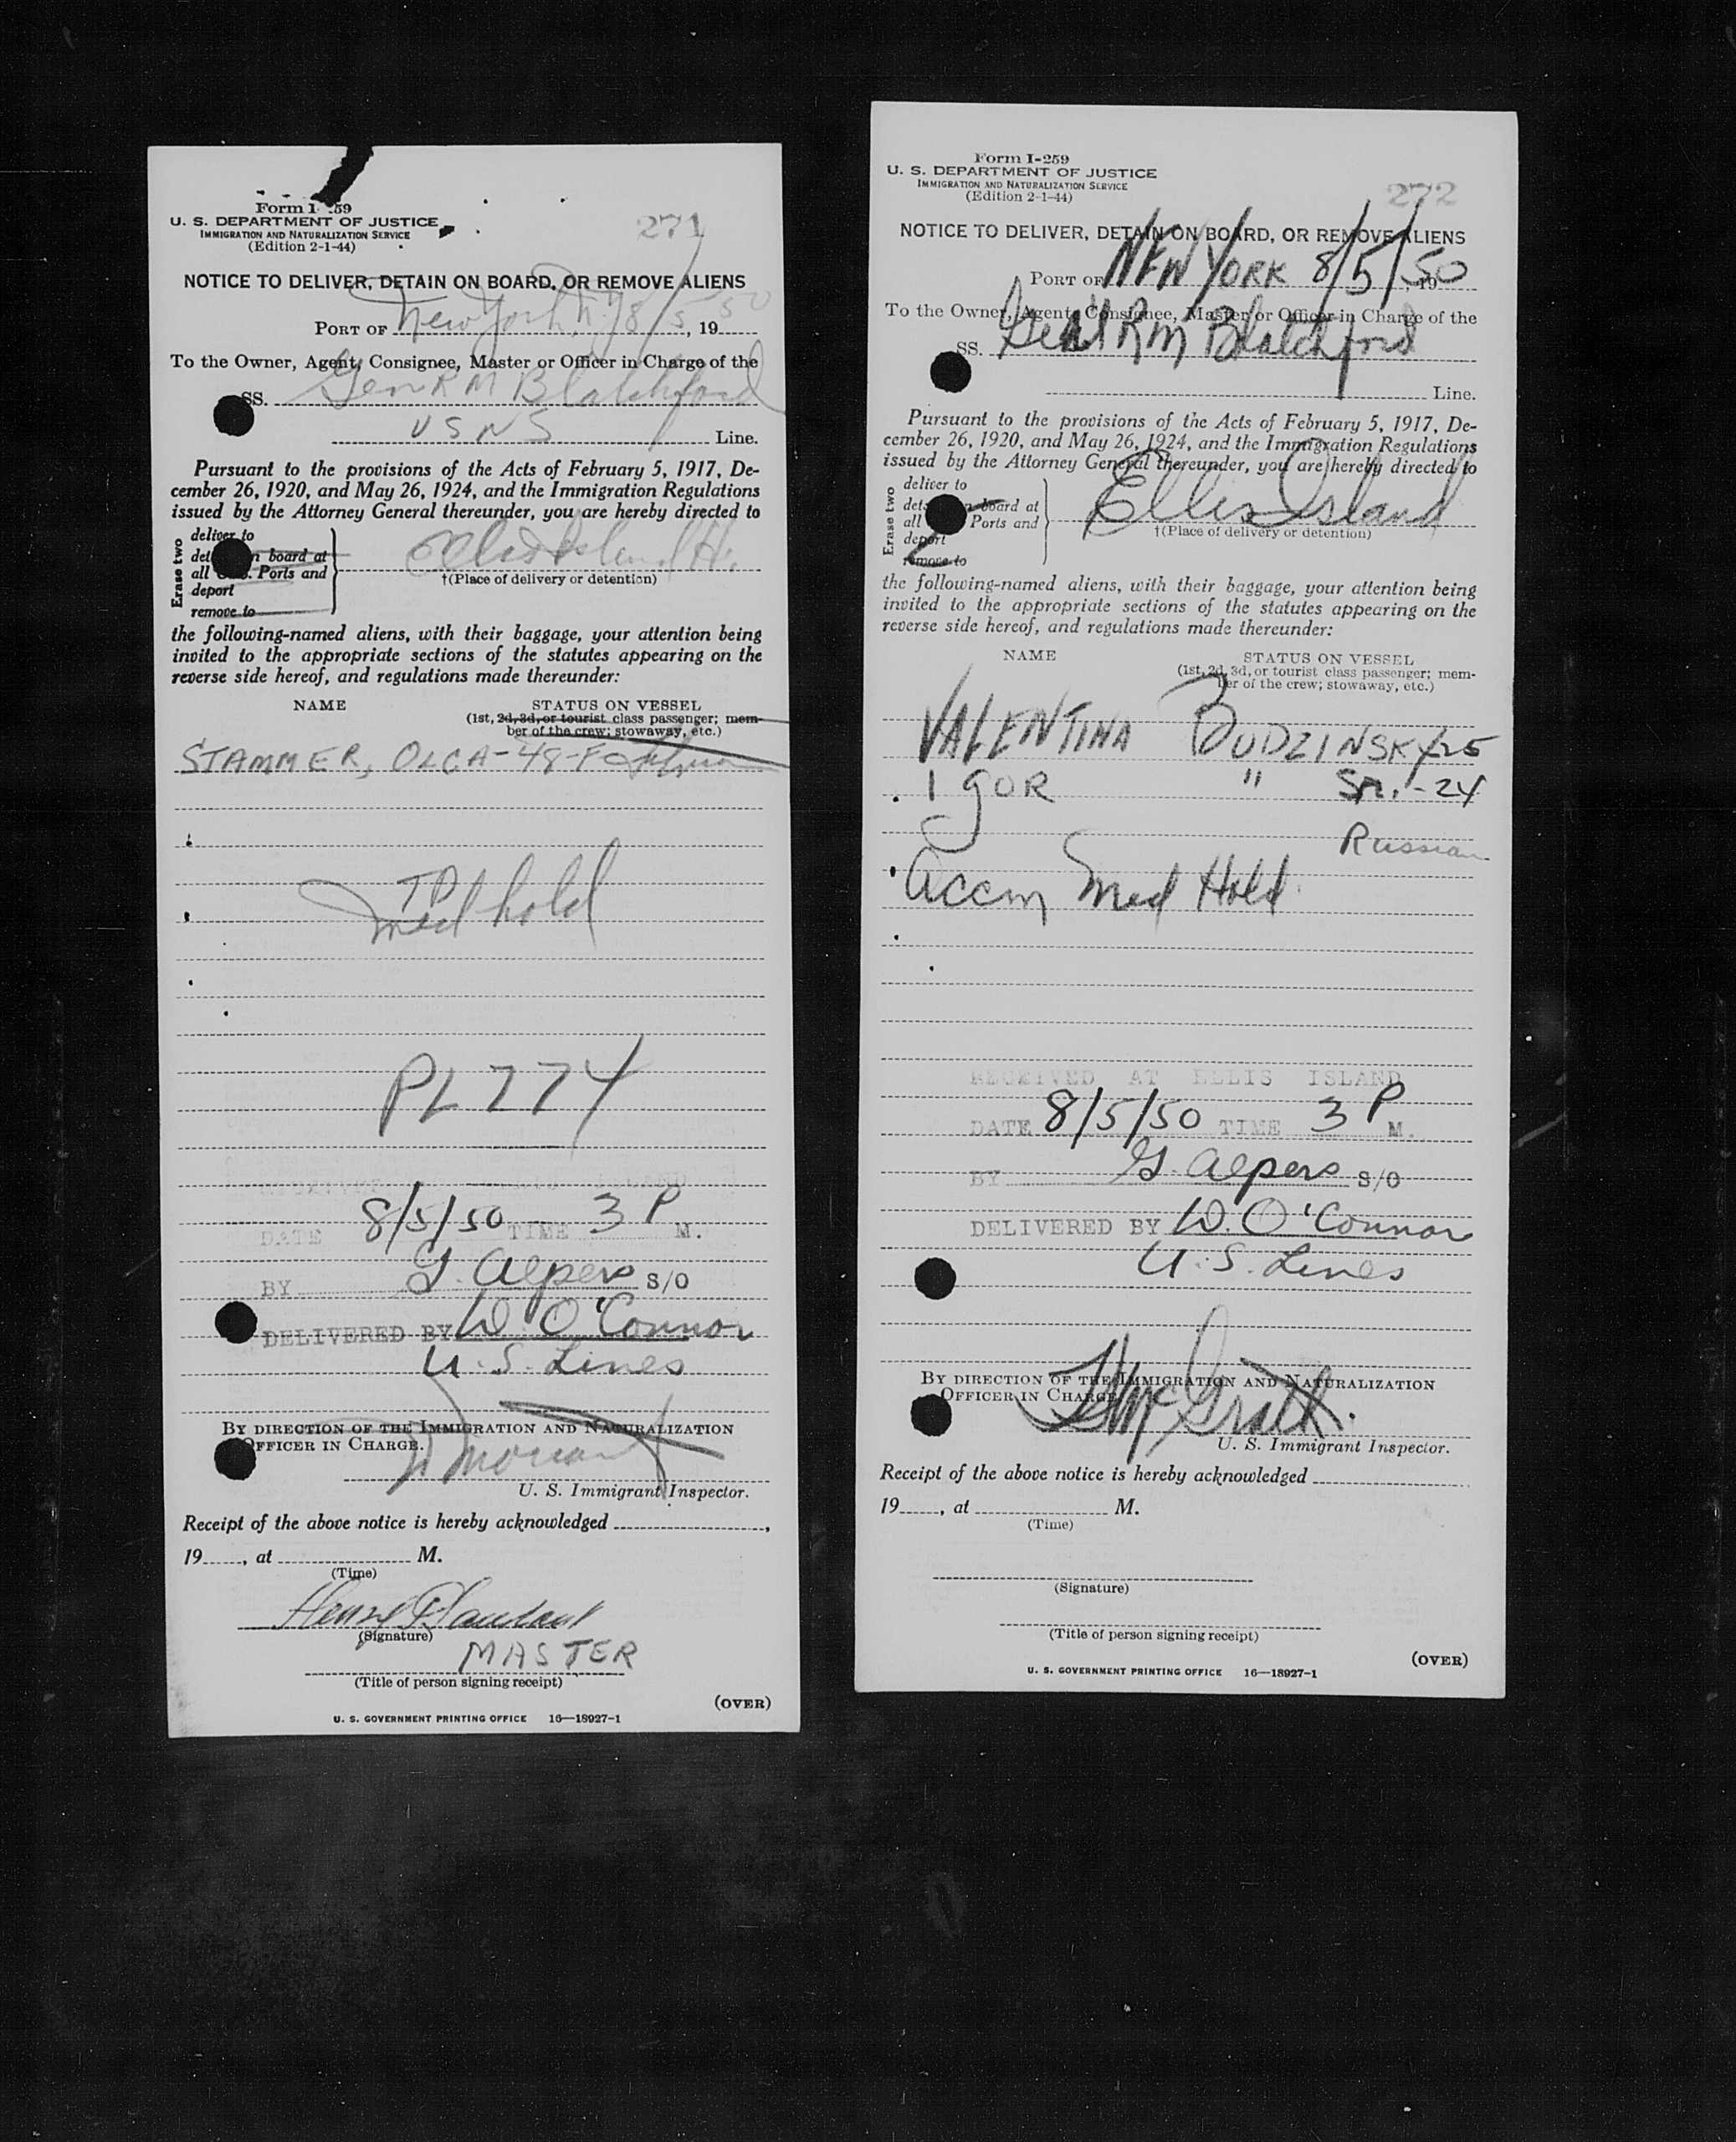 Form I-259
U. S. DEPARTMENT OF JUSTICE
IMMIGRATION AND NATURALIZATION SERVICE
(Edition 2-1-44)
271
NOTICE TO DELIVER, DETAIN ON BOARD, OR REMOVE ALIENS
PORT OF New York N.Y. 8/5, 1950
To the Owner, Agent, Consignee, Master or Officer in Charge of the
SS. Gen R M Blatchford
USNS Line.
Pursuant to the provisions of the Acts of February 5, 1917, De-
cember 26, 1920, and May 26, 1924, and the Immigration Regulations
issued by the Attorney General thereunder, you are hereby directed to
Erase two
deliver to
detain on board at
all U.S. Ports and
deport
remove to
Ellis Island H.
†(Place of delivery or detention)
the following-named aliens, with their baggage, your attention being
invited to the appropriate sections of the statutes appearing on the
reverse side hereof, and regulations made thereunder:
NAME STATUS ON VESSEL
(1st, 2d, 3d, or tourist class passenger; mem-
ber of the crew; stowaway, etc.)
STAMMER, OLGA-48-F
TD
med hold
PL 774
DATE 8/5/50 TIME 3 P M.
BY G. Alpers S/O
DELIVERED BY W O'Connor
U.S. Lines
BY DIRECTION OF THE IMMIGRATION AND NATURALIZATION
OFFICER IN CHARGE.
U. S. Immigrant Inspector.
Receipt of the above notice is hereby acknowledged ,
19 , at M.
(Time)
(Signature)
MASTER
(Title of person signing receipt)
(OVER)
U. S. GOVERNMENT PRINTING OFFICE 16—18927-1
Form I-259
U. S. DEPARTMENT OF JUSTICE
IMMIGRATION AND NATURALIZATION SERVICE
(Edition 2-1-44)
272
NOTICE TO DELIVER, DETAIN ON BOARD, OR REMOVE ALIENS
PORT OF NEW YORK 8/5/50, 19
To the Owner, Agent, Consignee, Master or Officer in Charge of the
SS. Gen'l R M Blatchford
Line.
Pursuant to the provisions of the Acts of February 5, 1917, De-
cember 26, 1920, and May 26, 1924, and the Immigration Regulations
issued by the Attorney General thereunder, you are hereby directed to
Erase two
deliver to
detain on board at
all U.S. Ports and
deport
remove to
Ellis Island
†(Place of delivery or detention)
the following-named aliens, with their baggage, your attention being
invited to the appropriate sections of the statutes appearing on the
reverse side hereof, and regulations made thereunder:
NAME STATUS ON VESSEL
(1st, 2d, 3d, or tourist class passenger; mem-
ber of the crew; stowaway, etc.)
VALENTINA BUDZINSKY 25
IGOR " SR. - 24
Russian
Accm Med Hold
RECEIVED AT ELLIS ISLAND
DATE 8/5/50 TIME 3 P M.
BY G. Alpers S/O
DELIVERED BY W. O'Connor
U.S. Lines
BY DIRECTION OF THE IMMIGRATION AND NATURALIZATION
OFFICER IN CHARGE.
McGrath.
U. S. Immigrant Inspector.
Receipt of the above notice is hereby acknowledged
19 , at M.
(Time)
(Signature)
(Title of person signing receipt)
(OVER)
U. S. GOVERNMENT PRINTING OFFICE 16—18927-1